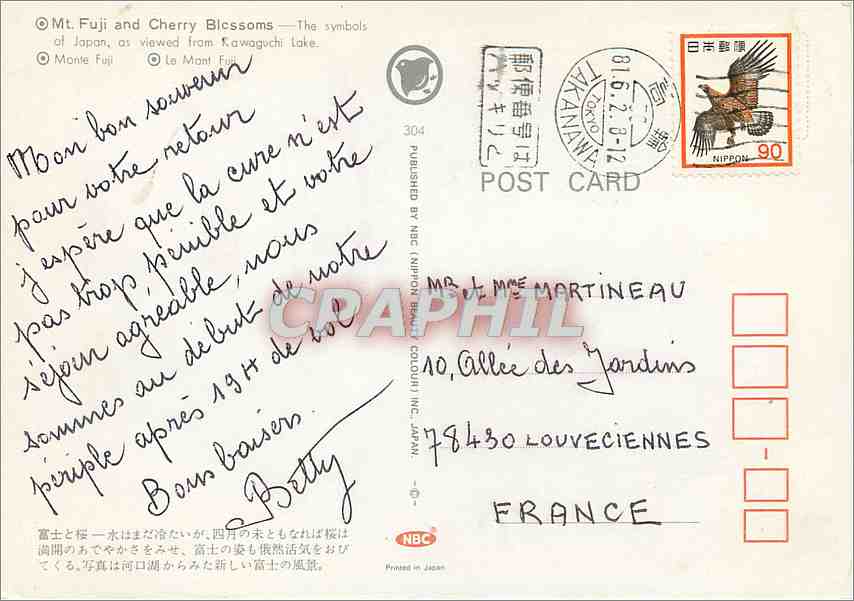 Mt. Fuji and Cherry Blossoms — The symbols
of Japan, as viewed from Kawaguchi Lake.
Monte Fuji Le Mont Fuji
Mon bon souvenir
pour votre retour
j'espère que la cure n'est
pas trop pénible et votre
séjour agréable, nous
sommes au début de notre
périple après 19H de vol
Bons baisers.
Betty
富士と桜—水はまだ冷たいが、四月の末ともなれば桜は
満開のあでやかさをみせ、富士の姿も俄然活気をおび
てくる。写真は河口湖からみた新しい富士の風景。
304
PUBLISHED BY NBC (NIPPON BEAUTY COLOUR) INC., JAPAN.
NBC
Printed in Japan
郵便番号は
ハッキリと
高輪
81.6.2.8-12
TOKYO
TAKANAWA
日本郵便
NIPPON 90
POST CARD
MR et MME MARTINEAU
10, Allée des Jardins
78430 LOUVECIENNES
FRANCE
CPAPHIL